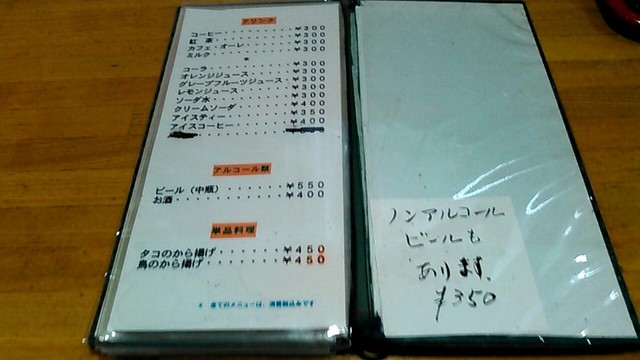 ドリンク
コーヒー・・・・・・・・・¥300
紅 茶・・・・・・・・・・¥300
カフェ・オーレ・・・・・・¥300
ミルク・・・・・・・・・・¥300
*
コーラ・・・・・・・・・・¥300
オレンジジュース・・・・・¥300
グレープフルーツジュース・・¥300
レモンジュース・・・・・・¥300
ソーダ水・・・・・・・・・¥300
クリームソーダ・・・・・・¥400
アイスティー・・・・・・・¥350
アイスコーヒー・・・・・・¥400
アルコール類
ビール(中瓶)・・・・・・¥550
お酒・・・・・・・・・・・¥400
単品料理
タコのから揚げ・・・・・・¥450
鳥のから揚げ・・・・・・・¥450
* 全てのメニューは、消費税込みです
ノンアルコール
ビールも
あります、
¥350